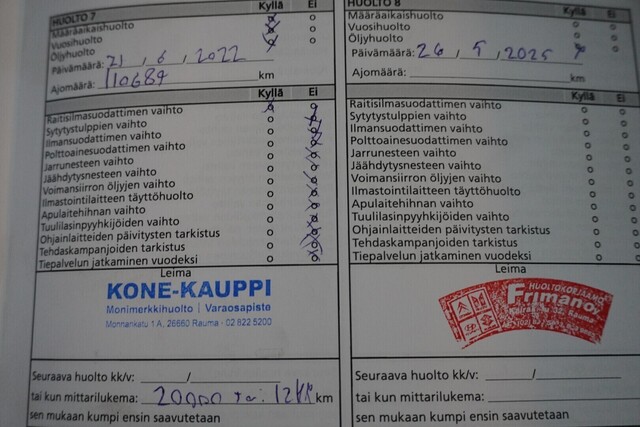 HUOLTO 7
Kyllä Ei
Määräaikaishuolto
Vuosihuolto
Öljyhuolto
Päivämäärä: 21 , 6 , 2022
Ajomäärä: 110689 km
Kyllä Ei
Raitisilmasuodattimen vaihto
Sytytystulppien vaihto
Ilmansuodattimen vaihto
Polttoainesuodattimen vaihto
Jarrunesteen vaihto
Jäähdytysnesteen vaihto
Voimansiirron öljyjen vaihto
Ilmastointilaitteen täyttöhuolto
Apulaitehihnan vaihto
Tuulilasinpyyhkijöiden vaihto
Ohjainlaitteiden päivitysten tarkistus
Tehdaskampanjoiden tarkistus
Tiepalvelun jatkaminen vuodeksi
Leima
KONE-KAUPPI
Monimerkkihuolto | Varaosapiste
Monnankatu 1 A, 26660 Rauma · 02 822 5200
Seuraava huolto kk/v: /
tai kun mittarilukema: 20000 tai 12KK km
sen mukaan kumpi ensin saavutetaan
HUOLTO 8
Kyllä Ei
Määräaikaishuolto
Vuosihuolto
Öljyhuolto
Päivämäärä: 26 , 5 , 2025
Ajomäärä: km
Kyllä Ei
Raitisilmasuodattimen vaihto
Sytytystulppien vaihto
Ilmansuodattimen vaihto
Polttoainesuodattimen vaihto
Jarrunesteen vaihto
Jäähdytysnesteen vaihto
Voimansiirron öljyjen vaihto
Ilmastointilaitteen täyttöhuolto
Apulaitehihnan vaihto
Tuulilasinpyyhkijöiden vaihto
Ohjainlaitteiden päivitysten tarkistus
Tehdaskampanjoiden tarkistus
Tiepalvelun jatkaminen vuodeksi
Leima
HUOLTOKORJAAMO
Frimano
32, Rauma
Seuraava huolto kk/v: /
tai kun mittarilukema:
sen mukaan kumpi ensin saavutetaan